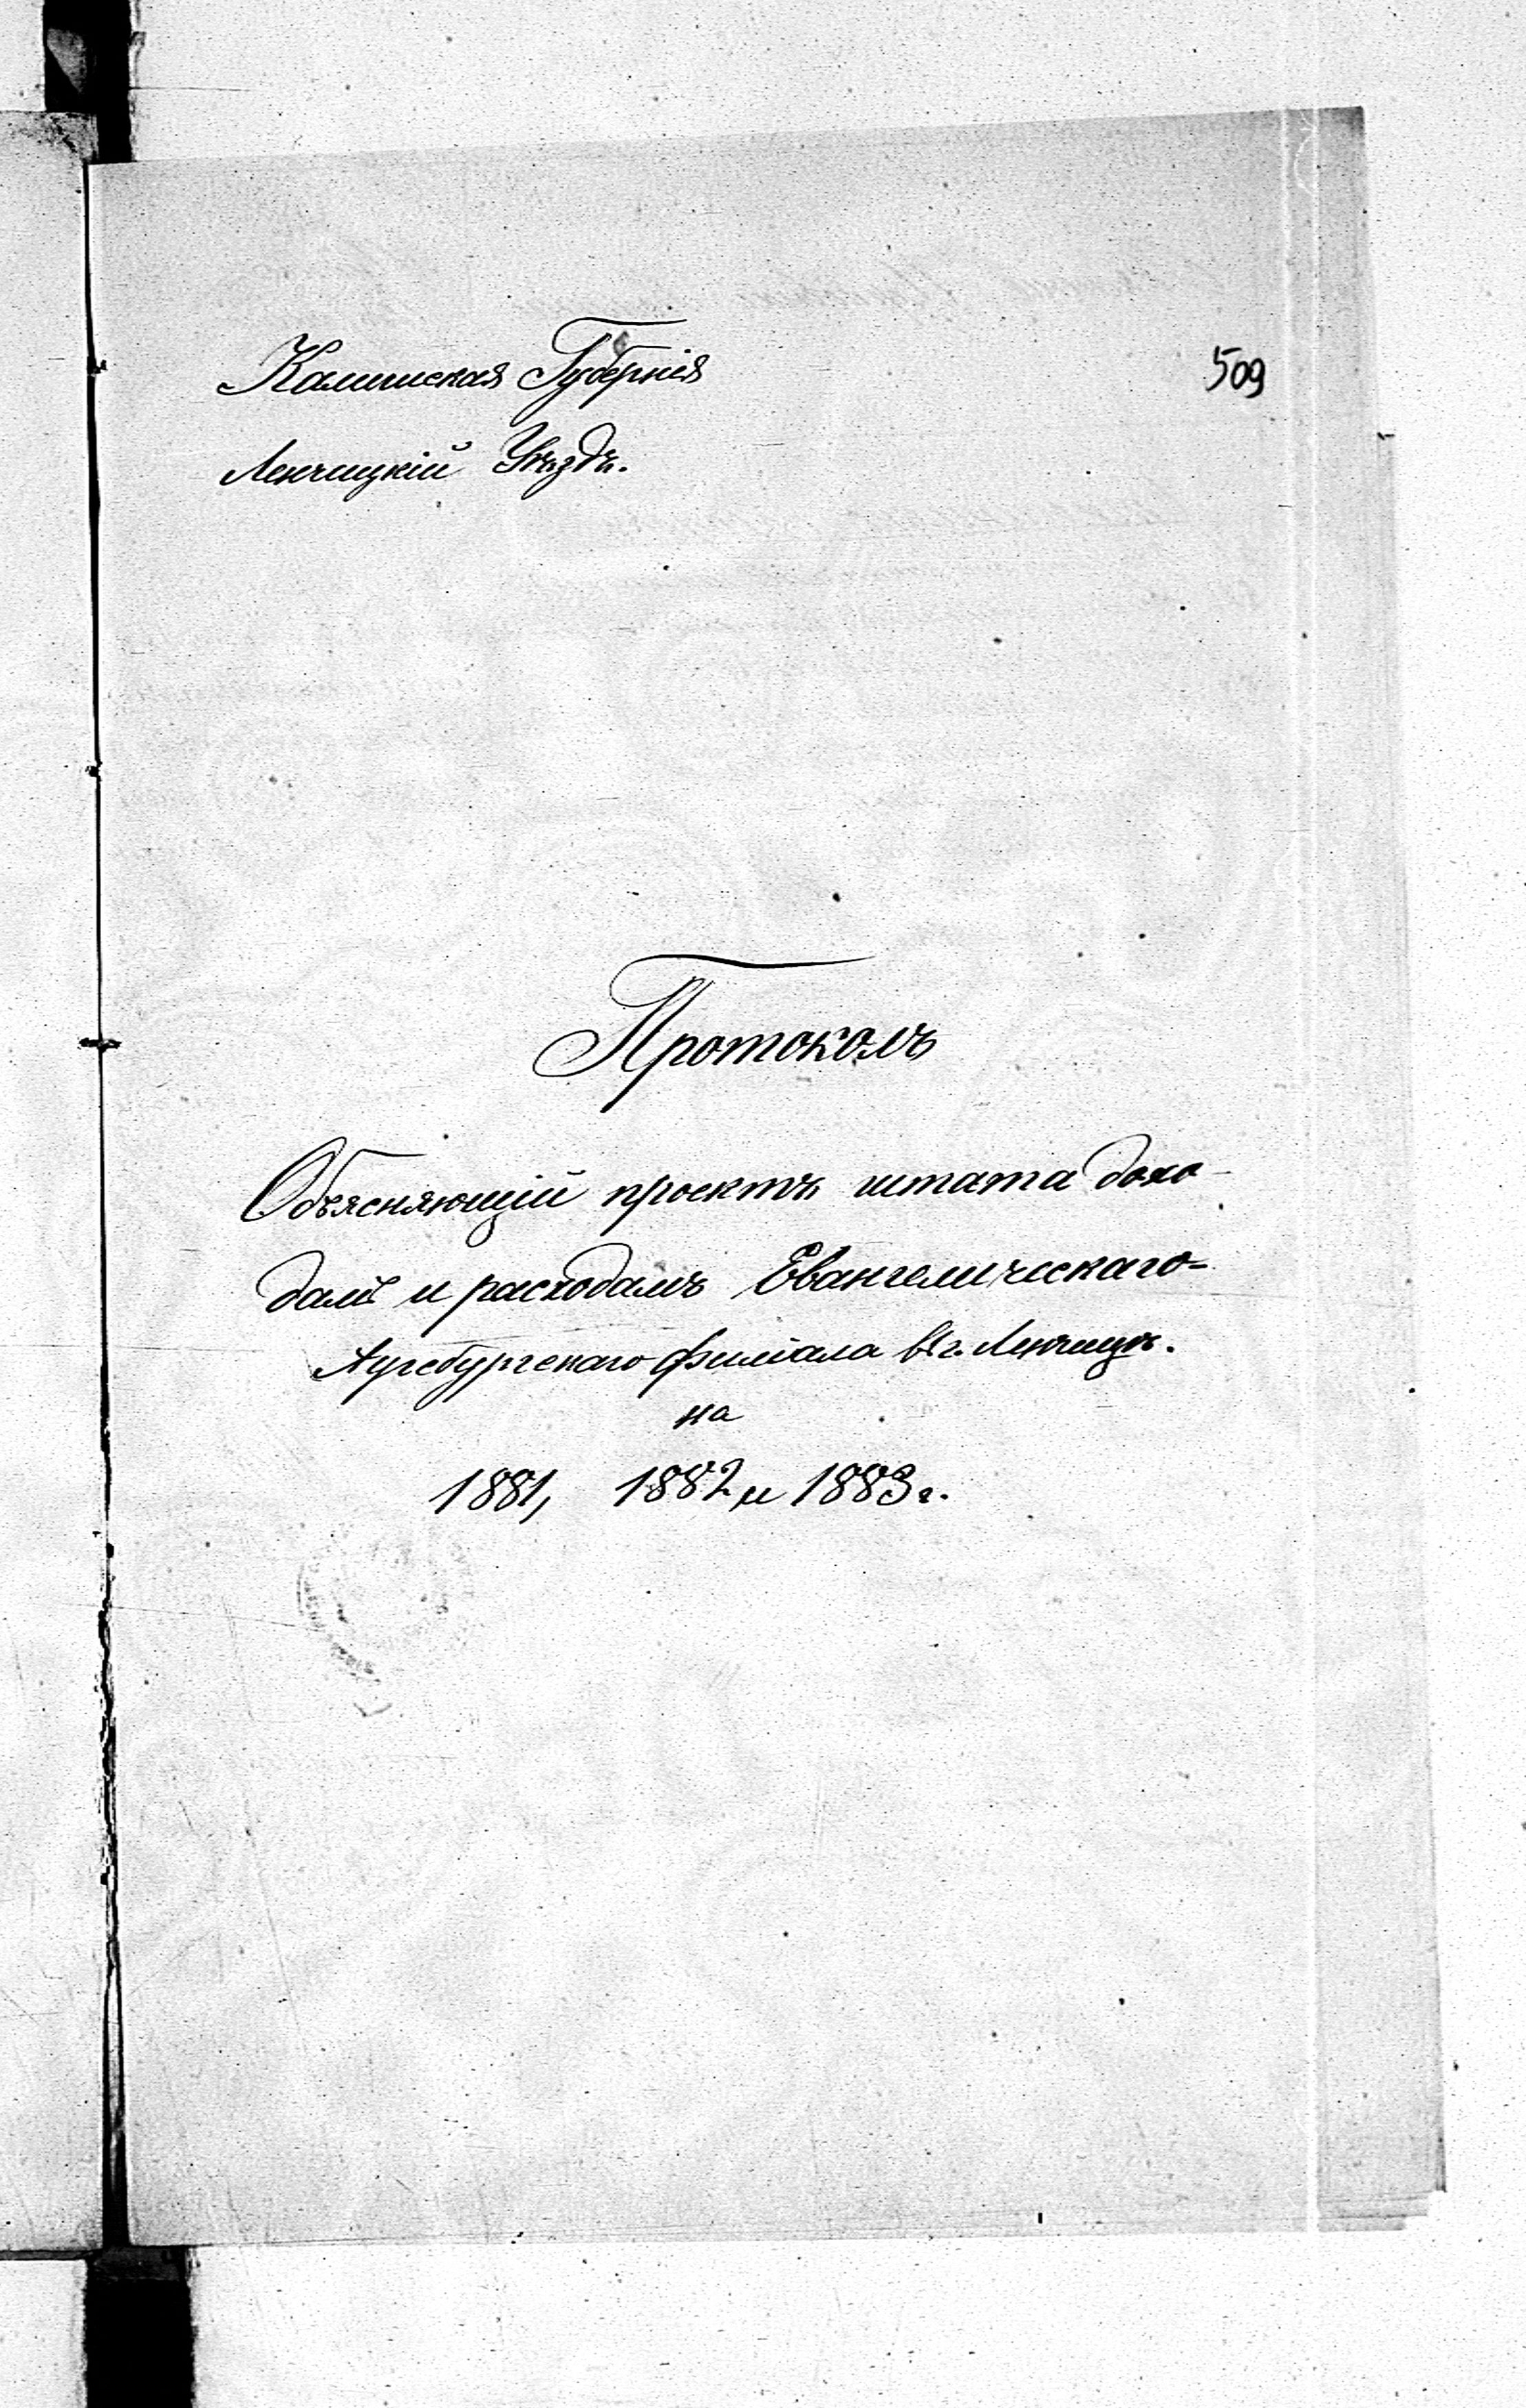 Калишская Губернія
509
Ленчицкій Уѣздъ.
Протоколъ
Объясняющій проектъ штата дохо-
дамъ и расходамъ Евангелическаго=
Аугсбургскаго филіала въ г. Ленчицѣ.
на
1881, 1882 и 1883 г.